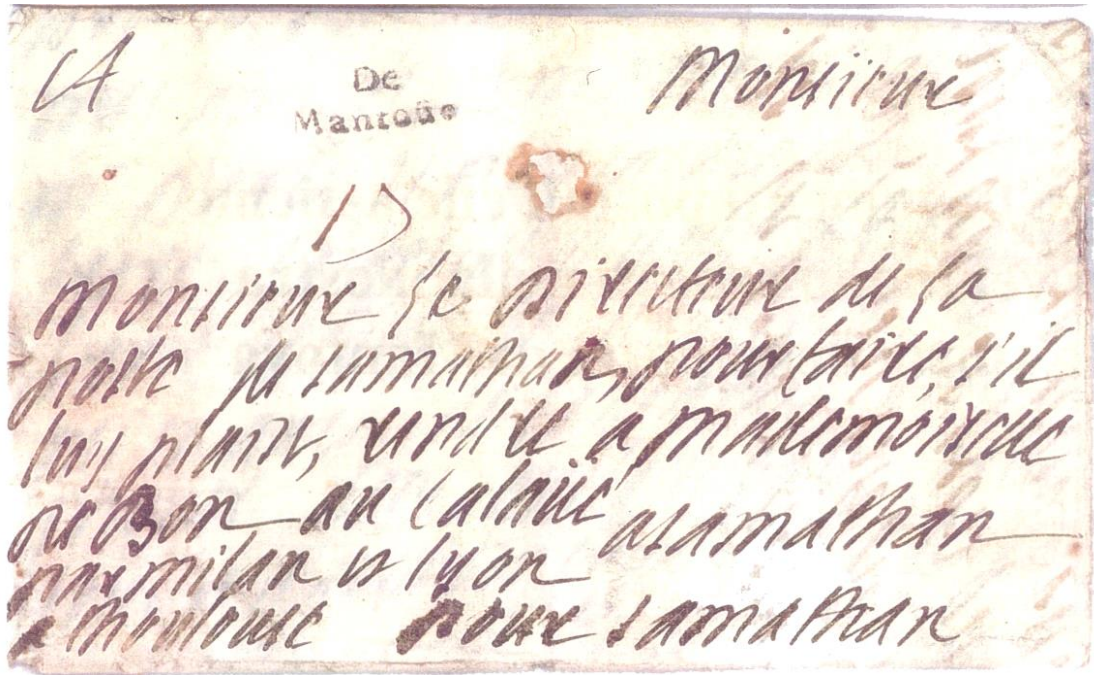 De
Mantoüe
Monsieur
Monsieur le directeur de la
poste de samathan, pour faire, s'il
luy plaist, rendre a mademoiselle
au
a samathan
par milan et lyon
a thoulouse pour samathan